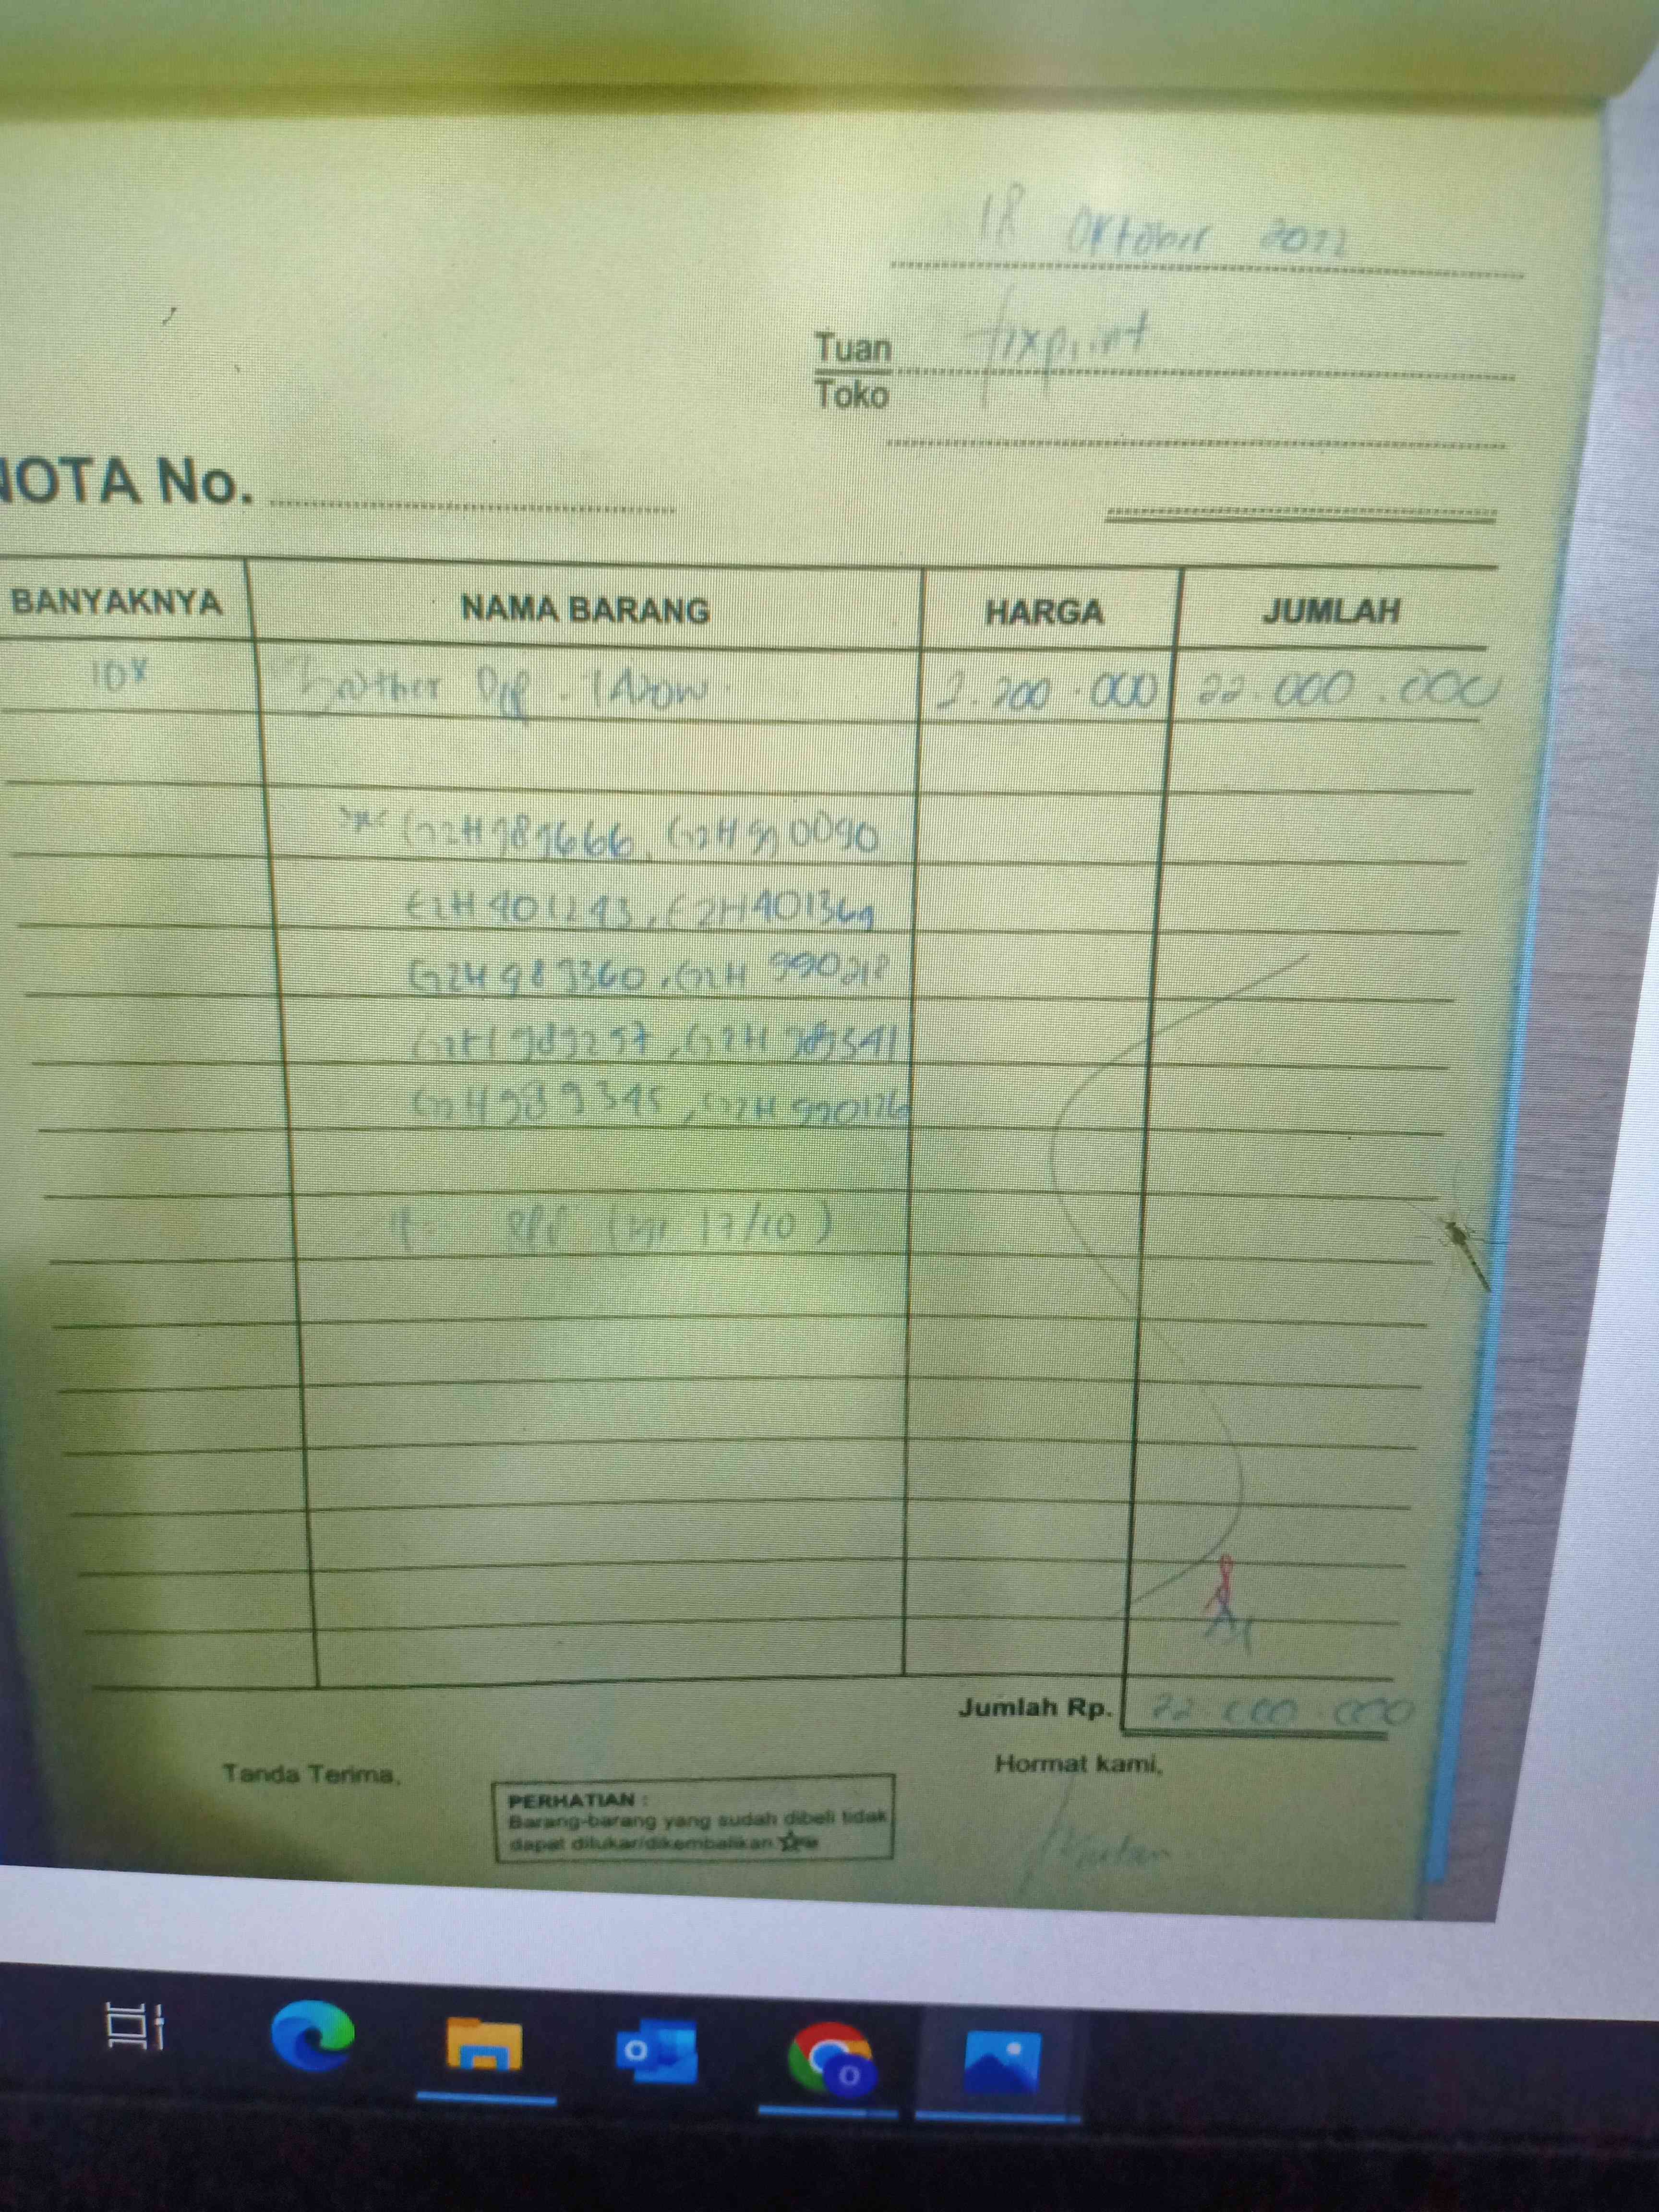 18 Oktober 2022
Tuan fixprint
Toko
NOTA No.
BANYAKNYA NAMA BARANG HARGA JUMLAH
10x Brother 2.200.000 22.000.000
G2H990090
E2H401243, E2H401369
G2H989360, G2H990218
G2H989257, G2H989541
G2H989345, G2H990126
17/10)
Jumlah Rp. 22.000.000
Tanda Terima, Hormat kami,
PERHATIAN :
Barang-barang yang sudah dibeli tidak
dapat ditukar/dikembalikan